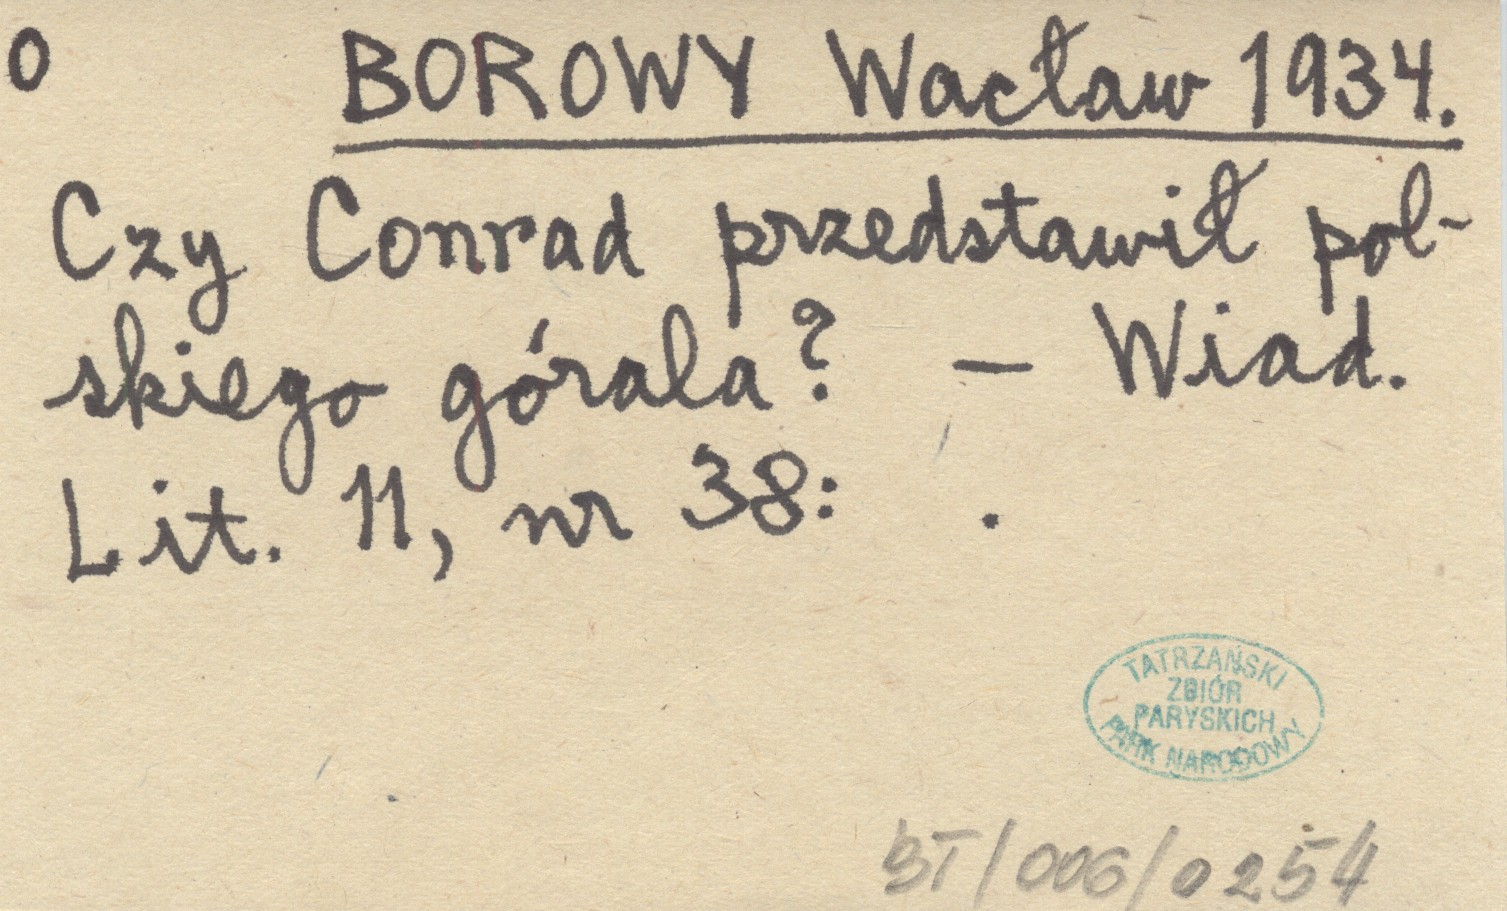 o BOROWY Wacław 1934.
Czy Conrad przedstawił pol-
skiego górala? – Wiad.
Lit. 11, nr 38: .
TATRZAŃSKI
ZBIÓR
PARYSKICH
PARK NARODOWY
BT/006/0254